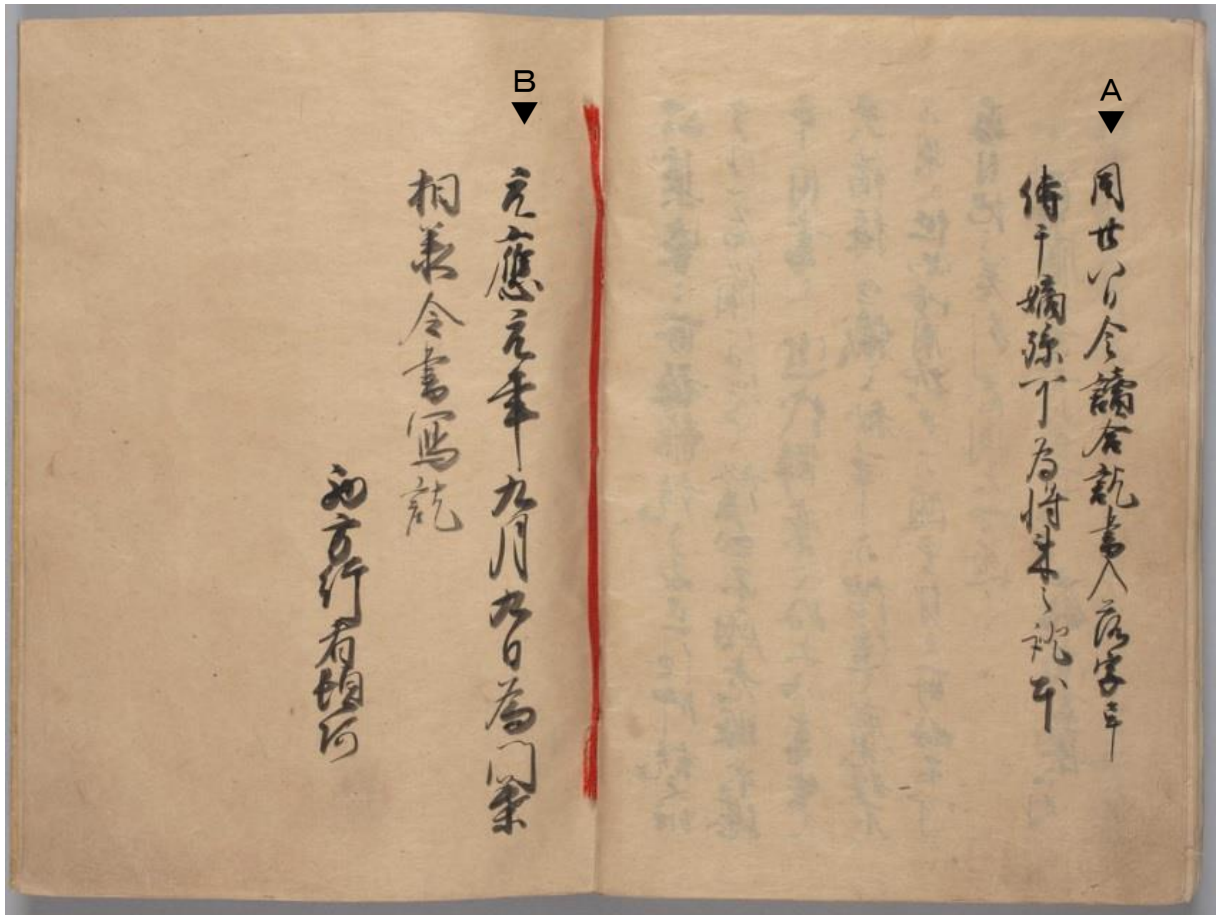 A
同廿八日令讀合訖書入落字了
傳于嫡孫可為将来之證本
B
元應元年九月九日為門葉
相承令書寫訖
西方行者頓阿